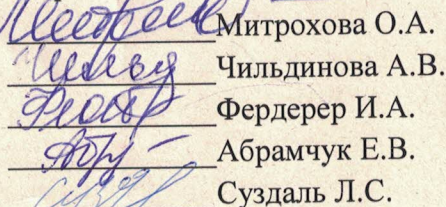 Митрохова О.А.
Чильдинова А.В.
Фердерер И.А.
Абрамчук Е.В.
Суздаль Л.С.